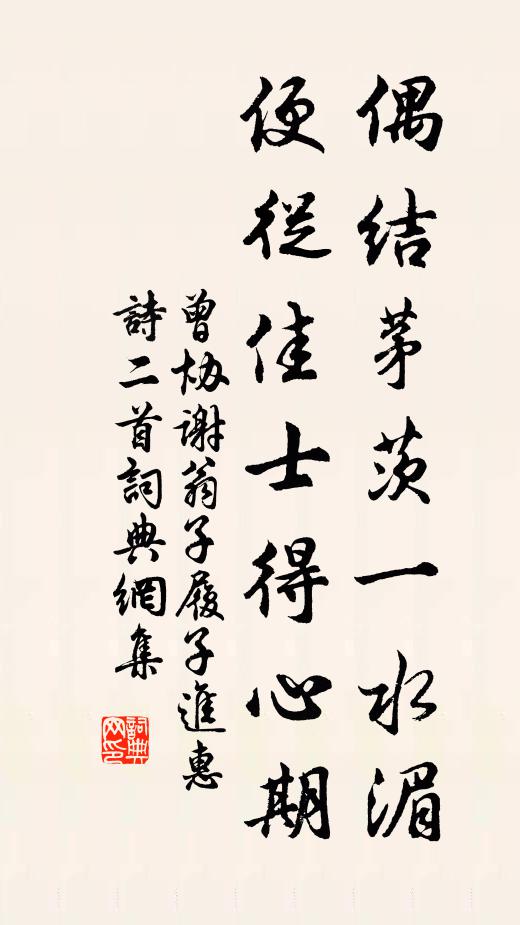 偶結茅茨一水湄
便從佳士得心期
曾協謝翁子履子進惠
詩二首詞典網集
詞典
网印